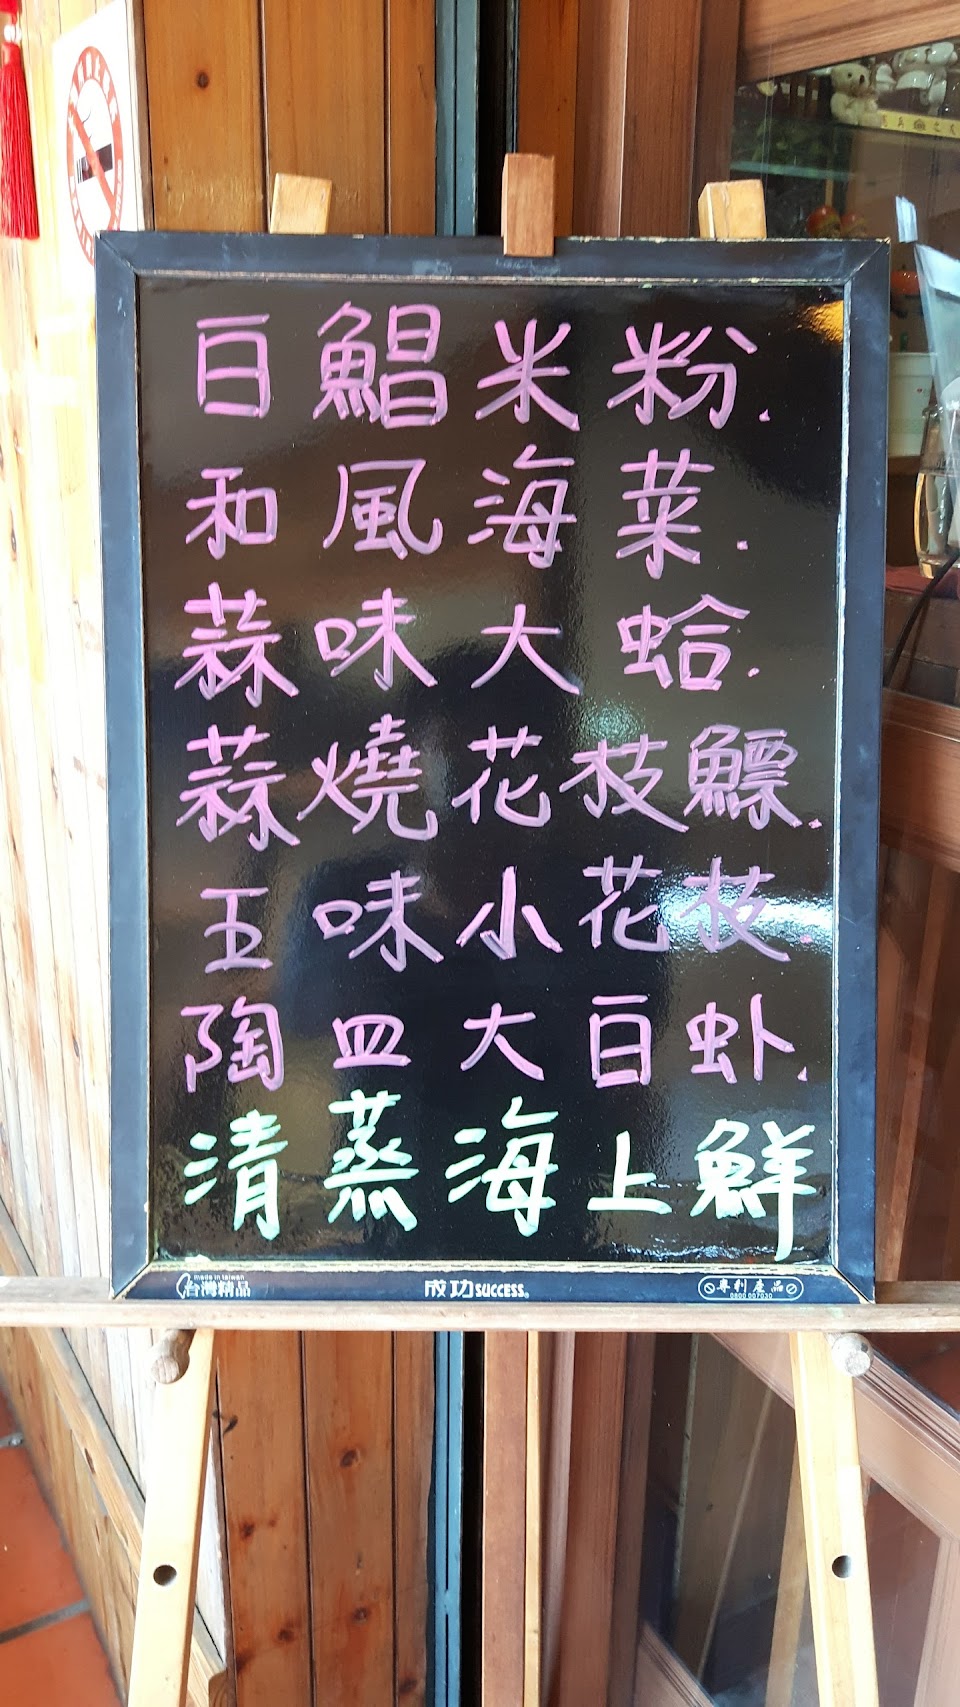 白鯧米粉.
和風海菜.
蒜味大蛤.
蒜燒花枝鰾.
五味小花枝.
陶皿大白虾.
清蒸海上鮮
made in taiwan
台灣精品
成功 SUCCESS®
專利產品
0800 007030